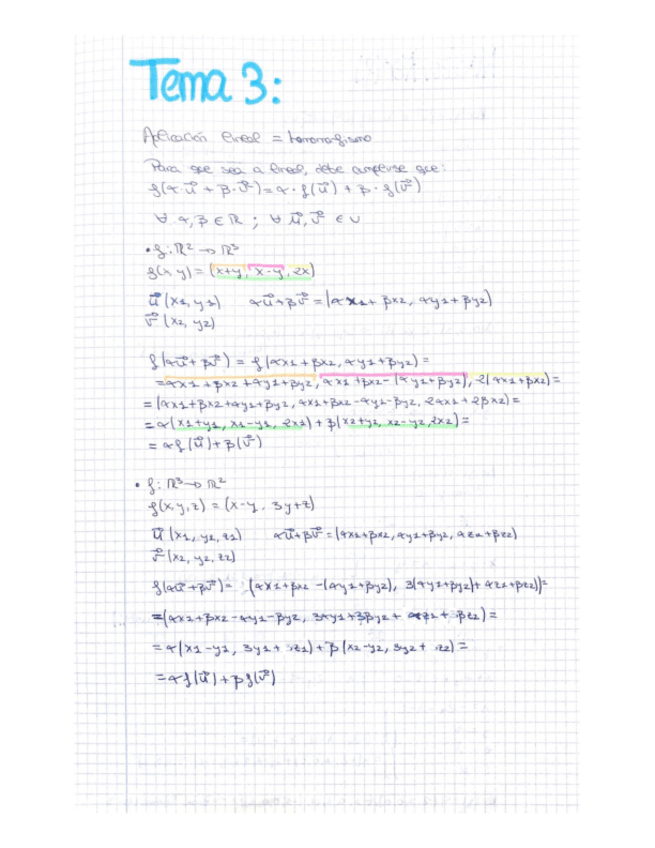 Tema 3:
Aplicación lineal = homomorfismo
Para que sea a lineal, debe cumplirse que:
f(α·u⃗ + β·v⃗) = α·f(u⃗) + β·f(v⃗)
∀ α, β ∈ ℝ ; ∀ u⃗, v⃗ ∈ U
• f: ℝ² → ℝ³
f(x, y) = (x+y, x-y, 2x)
u⃗ (x1, y1) αu⃗+βv⃗ = (αx1 + βx2, αy1 + βy2)
v⃗ (x2, y2)
f(αu⃗ + βv⃗) = f(αx1 + βx2, αy1 + βy2) =
= αx1 + βx2 + αy1 + βy2, αx1 + βx2 - (αy1 + βy2), 2(αx1 + βx2) =
= (αx1 + βx2 + αy1 + βy2, αx1 + βx2 - αy1 - βy2, 2αx1 + 2βx2) =
= α(x1+y1, x1-y1, 2x1) + β(x2+y2, x2-y2, 2x2) =
= αf(u⃗) + β(v⃗)
• f: ℝ³ → ℝ²
f(x, y, z) = (x-y, 3y+z)
u⃗ (x1, y1, z1) αu⃗+βv⃗ = (αx1+βx2, αy1+βy2, αz1+βz2)
v⃗ (x2, y2, z2)
f(αu⃗ + βv⃗) = (αx1+βx2 - (αy1+βy2), 3(αy1+βy2)+ αz1+βz2))=
= (αx1 + βx2 - αy1 - βy2, 3αy1 + 3βy2 + αz1 + βz2) =
= α(x1 - y1, 3y1 + z1) + β(x2 - y2, 3y2 + z2) =
= αf(u⃗) + βf(v⃗)